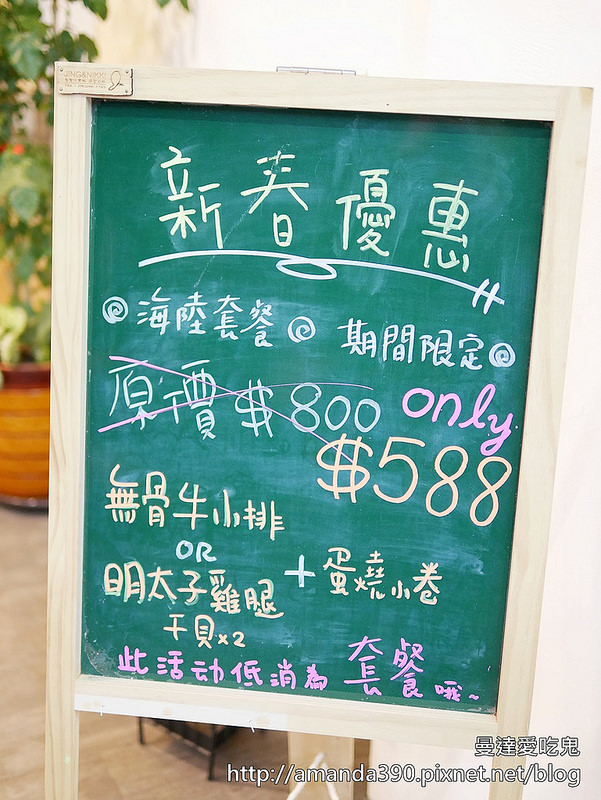 JING&NIKKI
新春優惠
海陸套餐 期間限定
原價 $800 only
$588
無骨牛小排
OR
明太子雞腿 + 蛋燒小卷
干貝x2
此活动低消為 套餐 哦~
曼達愛吃鬼
http://amanda390.pixnet.net/blog